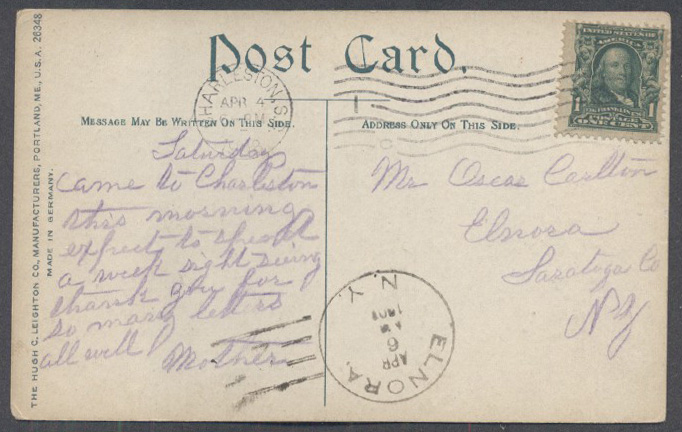 Post Card.
UNITED STATES OF AMERICA
FRANKLIN
1 1
ONE CENT
CHARLESTON, S
APR 4
6 PM
MESSAGE MAY BE WRITTEN ON THIS SIDE.
ADDRESS ONLY ON THIS SIDE.
THE HUGH C. LEIGHTON CO., MANUFACTURERS, PORTLAND, ME., U.S.A. 26348
MADE IN GERMANY.
Saturday
came to Charleston
this morning
expect to spend
a week sight seeing
thank you for
so many letters
all well
Mother
Mr Oscar Carlton
Elnora
Saratoga Co
NY
ELNORA,
APR
6
AM
N.Y.